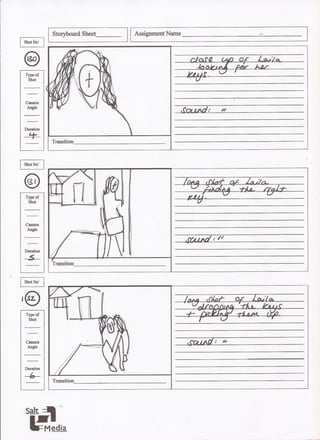 Storyboard Sheet
Assignment Name
Shot No'
130
Type of
Shot
Camera
Angle
Duration
4
Transition
close up of Laila
looking for her
keys.
Sound: "
Shot No'
131
Type of
Shot
Camera
Angle
Duration
5
Transition
long shot of Laila
finding the right
key.
Sound: "
Shot No'
132
Type of
Shot
Camera
Angle
Duration
6
Transition
long shot of Laila
dropping the keys
+ picking them up.
Sound: "
Salt
Media